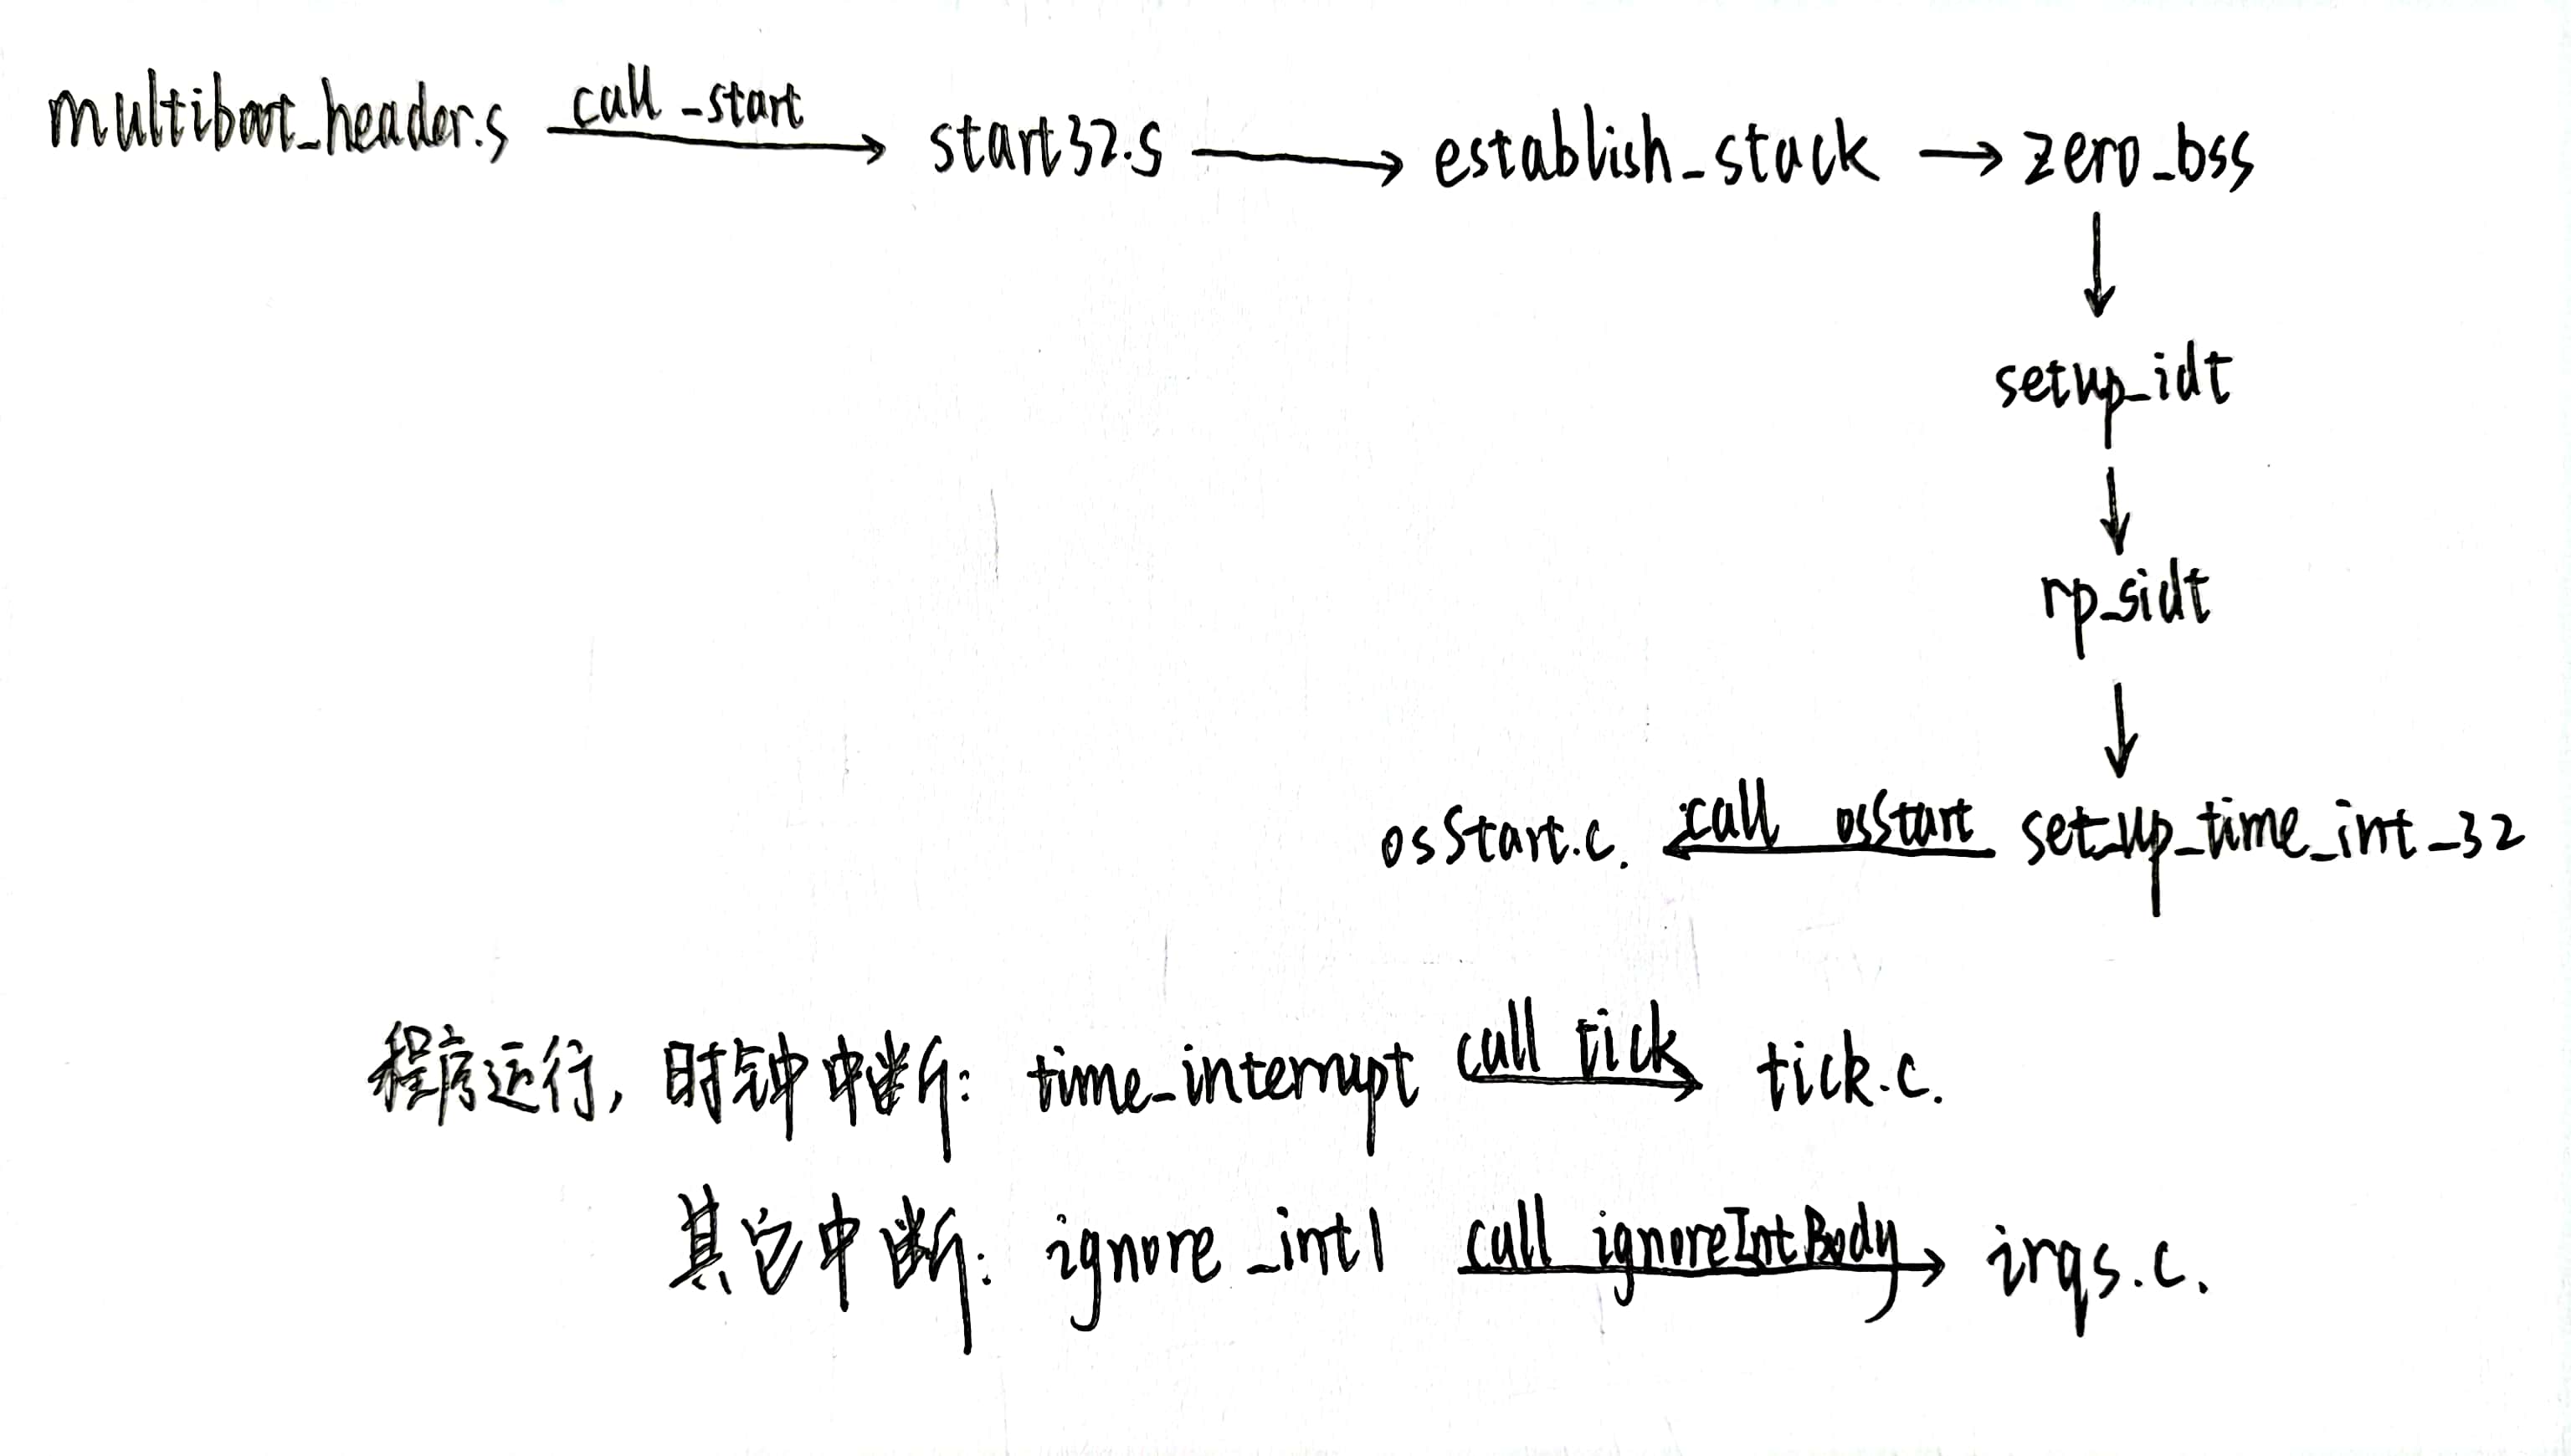 multiboot_header.s call _start start32.S establish_stack zero_bss
setup_idt
rp_sidt
osStart.c. call osStart set_up_time_int_32
程序运行, 时钟中断: time_interrupt call tick tick.c.
其它中断: ignore_int1 call ignoreIntBody irqs.c.